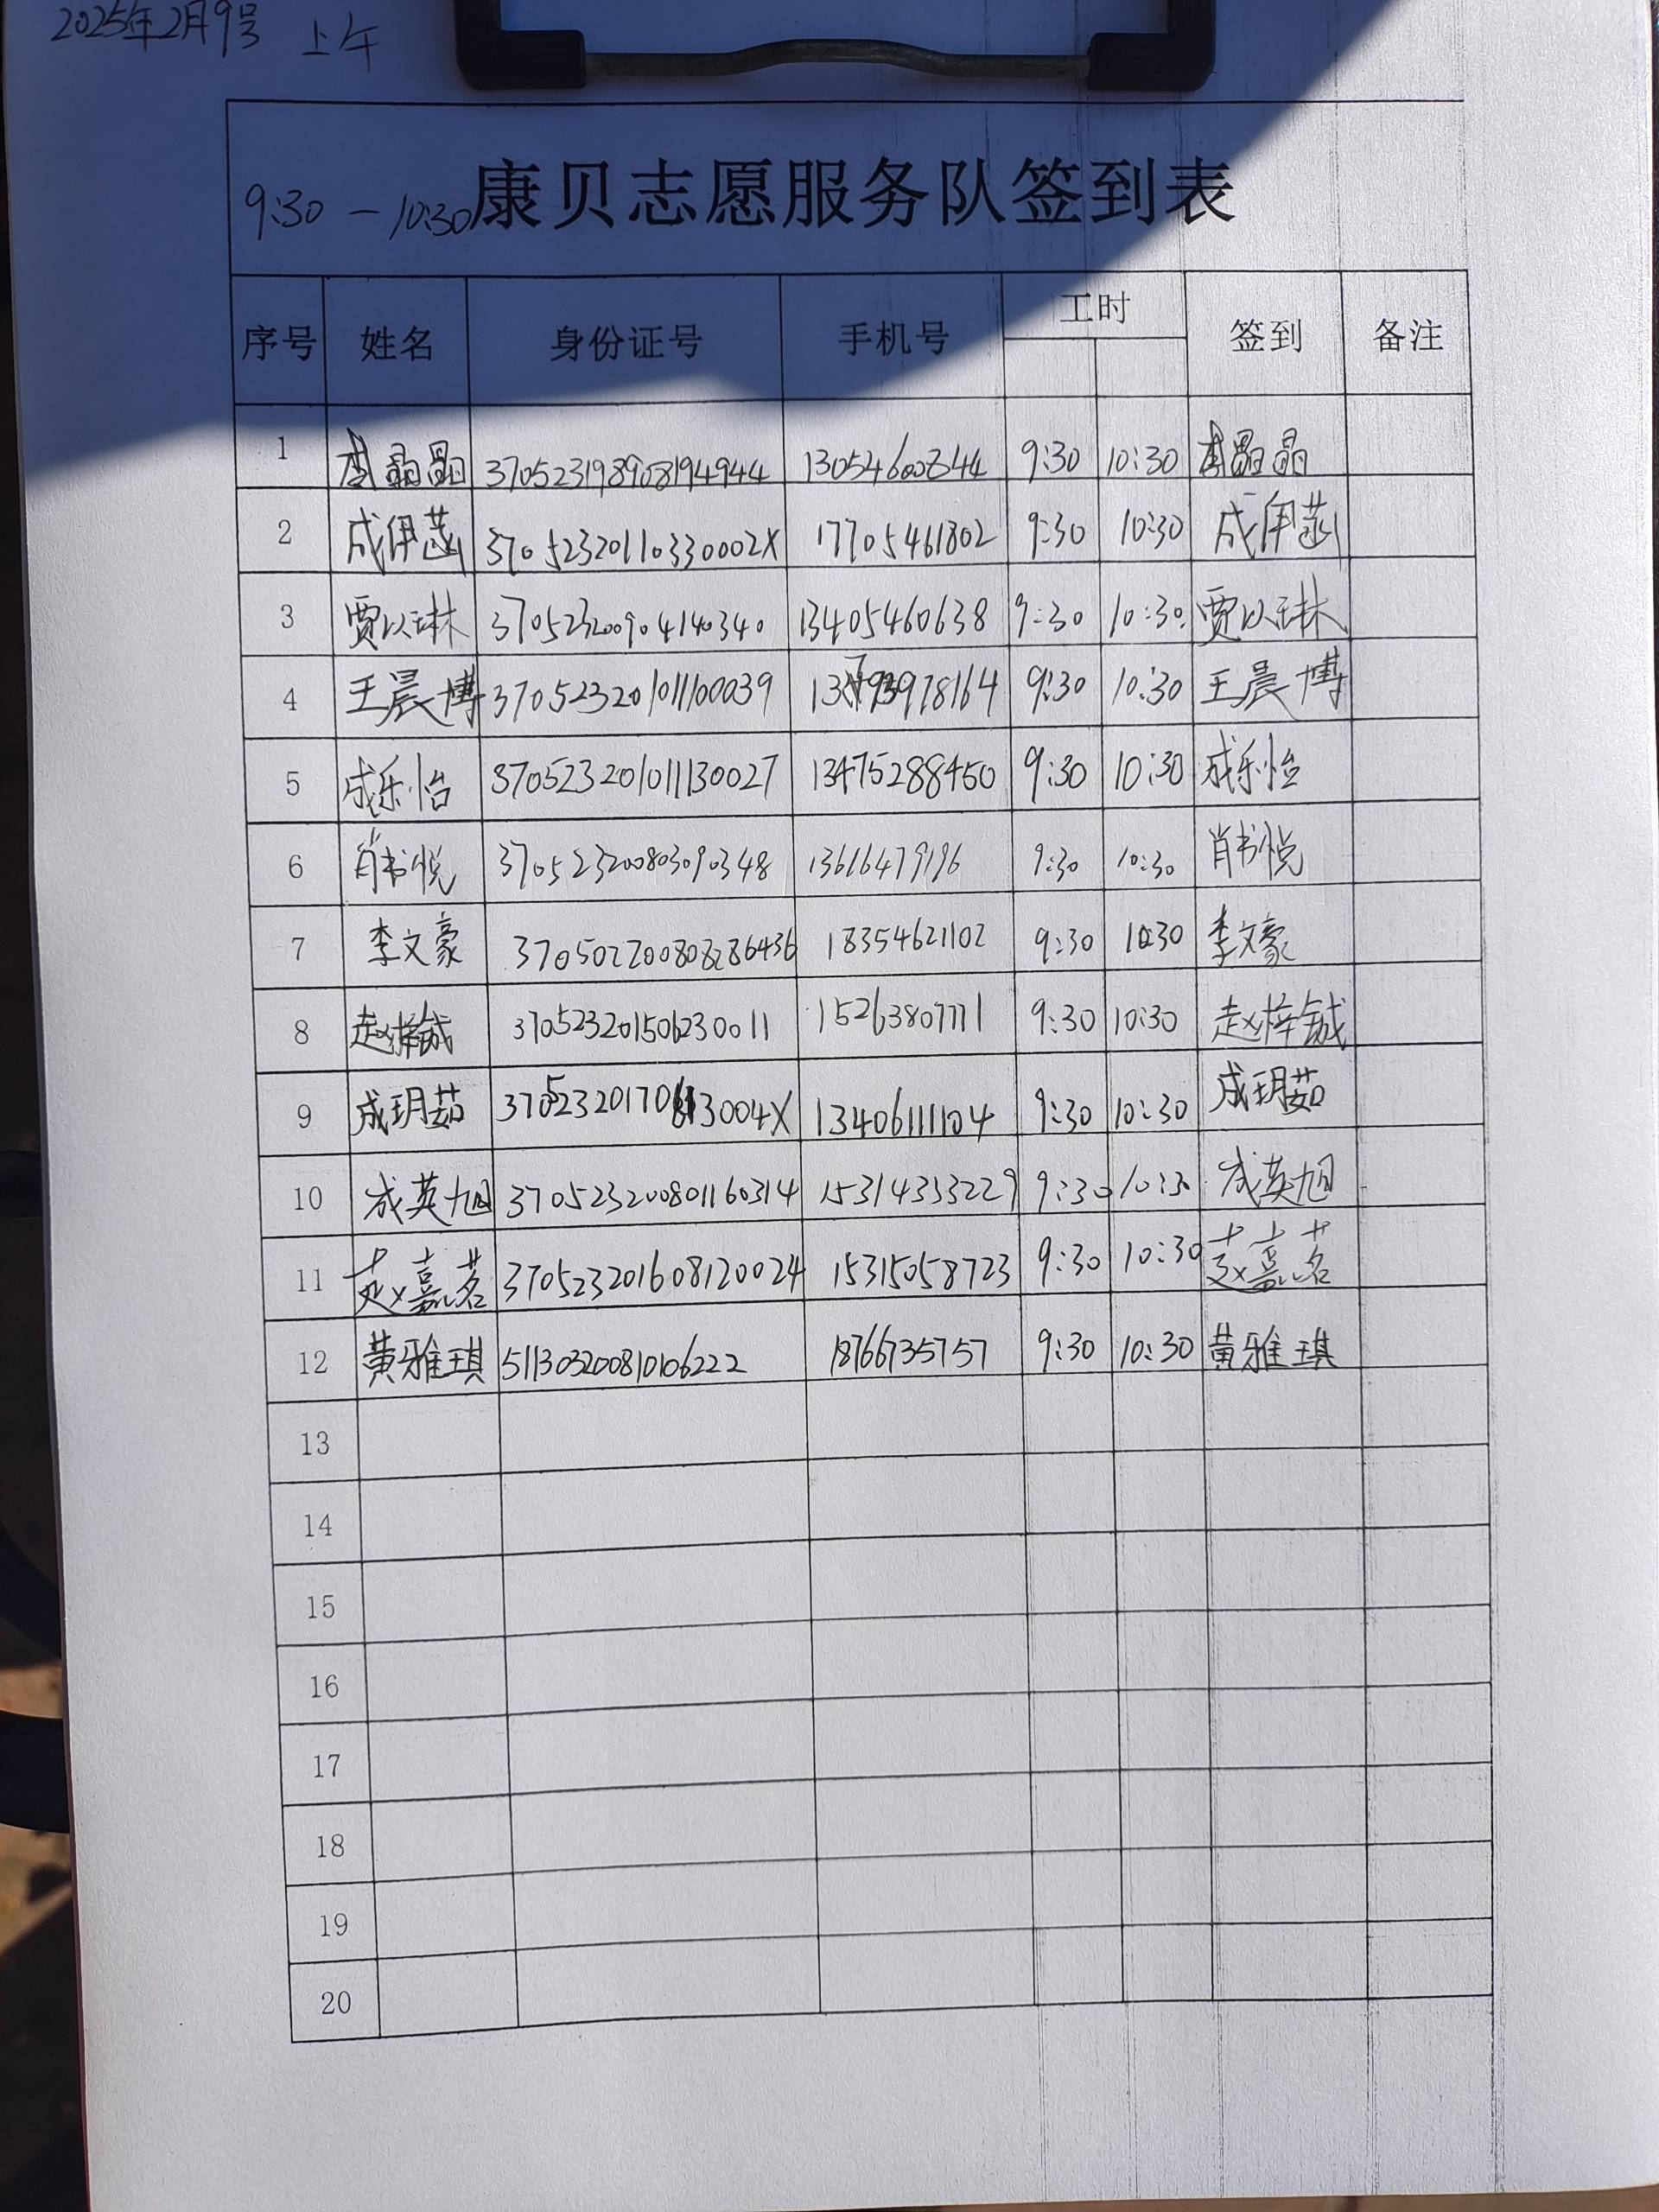 2025年2月9号 上午
康贝志愿服务队签到表
9:30 — 10:30
序号 姓名 身份证号 手机号 工时 签到 备注
1 李晶晶 370523198908194944 9:30 10:30 李晶晶
2 成伊菡 37052320110330002X 17705461802 9:30 10:30 成伊菡
3 贾以琳 370523200904140340 13405460638 9:30 10:30 贾以琳
4 王晨博 370523201011100039 9:30 10:30 王晨博
5 成乐怡 370523201011130027 13475288450 9:30 10:30 成乐怡
6 肖书悦 370523200803090348 13616479196 9:30 10:30 肖书悦
7 李文豪 370502200808286436 18354621102 9:30 10:30 李文豪
8 赵梓铖 370523201506230011 15263807771 9:30 10:30 赵梓铖
9 成玥茹 13406111104 9:30 10:30 成玥茹
10 成英旭 370523200801160314 15314353229 9:30 10:30 成英旭
11 赵嘉茗 370523201608120024 15315058723 9:30 10:30 赵嘉茗
12 黄雅琪 511303200810106222 18766735757 9:30 10:30 黄雅琪
13
14
15
16
17
18
19
20